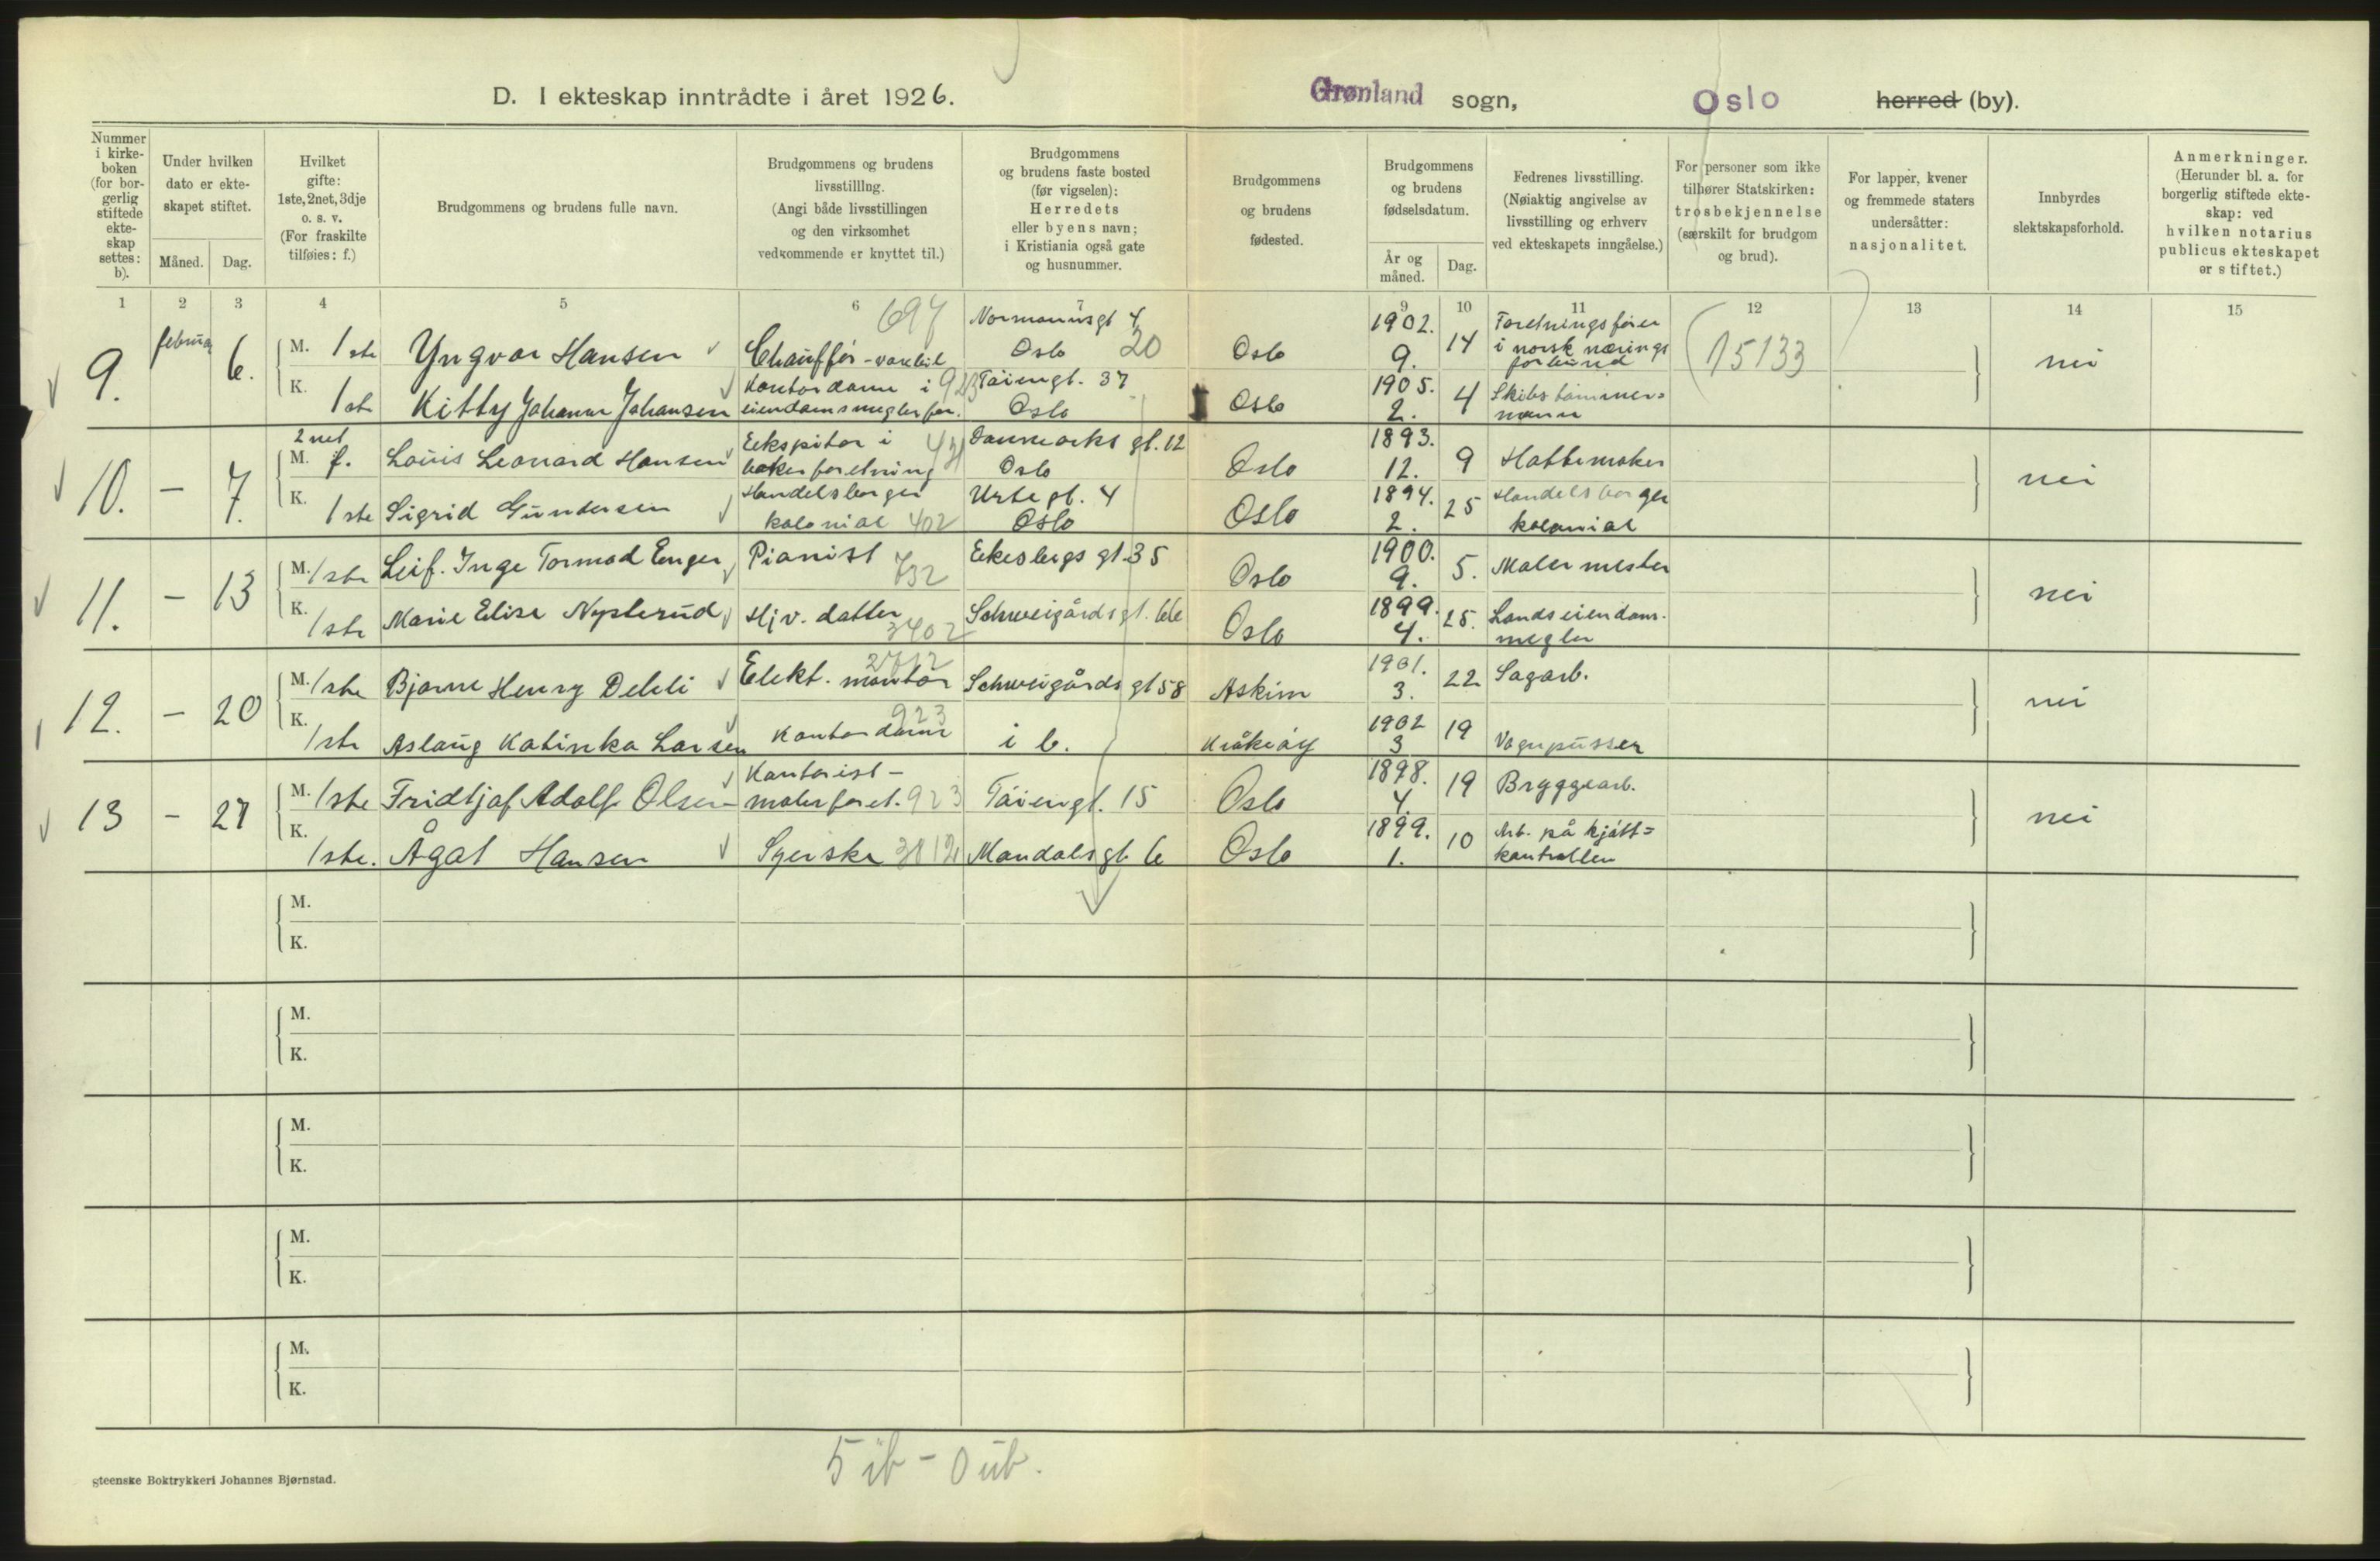 D. I ekteskap inntrådte i året 1926.
Grønland sogn, Oslo herred (by).
Nummer i kirkeboken (for borgerlig stiftede ekteskap settes: b).
Under hvilken dato er ekteskapet stiftet.
Måned. Dag.
Hvilket gifte: 1ste, 2net, 3dje o. s. v. (For fraskilte tilføies: f.)
Brudgommens og brudens fulle navn.
Brudgommens og brudens livsstilling. (Angi både livsstillingen og den virksomhet vedkommende er knyttet til.)
Brudgommens og brudens faste bosted (før vigselen): Herredets eller byens navn; i Kristiania også gate og husnummer.
Brudgommens og brudens fødested.
Brudgommens og brudens fødselsdatum.
År og måned. Dag.
Fedrenes livsstilling. (Nøiaktig angivelse av livsstilling og erhverv ved ekteskapets inngåelse.)
For personer som ikke tilhører Statskirken: trosbekjennelse (særskilt for brudgom og brud).
For lapper, kvener og fremmede staters undersåtter: nasjonalitet.
Innbyrdes slektskapsforhold.
Anmerkninger. (Herunder bl. a. for borgerlig stiftede ekteskap: ved hvilken notarius publicus ekteskapet er stiftet.)
1 2 3 4 5 6 7 9 10 11 12 13 14 15
9. februar 6. M. 1ste Yngvar Hansen Chauffør - varebil 697 Normannsgt 4 Oslo 20 Oslo 1902. 9. 14 Foretningsfører i norsk nærings forbund 15133 nei
K. 1ste Kitty Johanne Johansen Kontordame i eiendomsmeglerfor. 923 Tøiengt. 37 Oslo Oslo 1905. 2. 4 Skibstømmer= mann
10. - 7. 2net M. f. Louis Leonard Hansen Ekspitør i bakerforetning Danmarks gt. 12 Oslo Oslo 1893. 12. 9 Hattemaker nei
K. 1ste Sigrid Gundersen Handelsborger kolonial 402 Urtegt. 4 Oslo Oslo 1894. 2. 25 Handelsborger kolonial
11. - 13 M. 1ste Leif. Inge Tormod Enger Pianist 732 Ekebergs gt. 35 Oslo 1900. 9. 5. Malermester nei
K. 1ste Marie Elise Nysterud Hjv. datter 3402 Schweigårdsgt. 66 Oslo 1899. 4. 25. Landseiendoms. megler
12. - 20 M. 1ste Bjarne Henry Deleli Elekt. montør 2712 Schweigårds gt 58 Askim 1901. 3. 22 Sagarb. nei
K. 1ste Aslaug Katinka Larsen Kontordame 923 i b. Kråkerøy 1902 3 19 Vognpusser
13 - 27 M. 1ste Fridtjof Adolf Olsen Kantorist - malerforet. 923 Tøiengt. 15 Oslo 1898. 4. 19 Bryggearb. nei
K. 1ste. Ågot Hansen Syerske 3812 Mandalsgt. 6 Oslo 1899. 1. 10 Arb. på kjøtt= kontrollen
M.
K.
M.
K.
M.
K.
M.
K.
M.
K.
5 ib - 0 ub.
gteenske Boktrykkeri Johannes Bjørnstad.